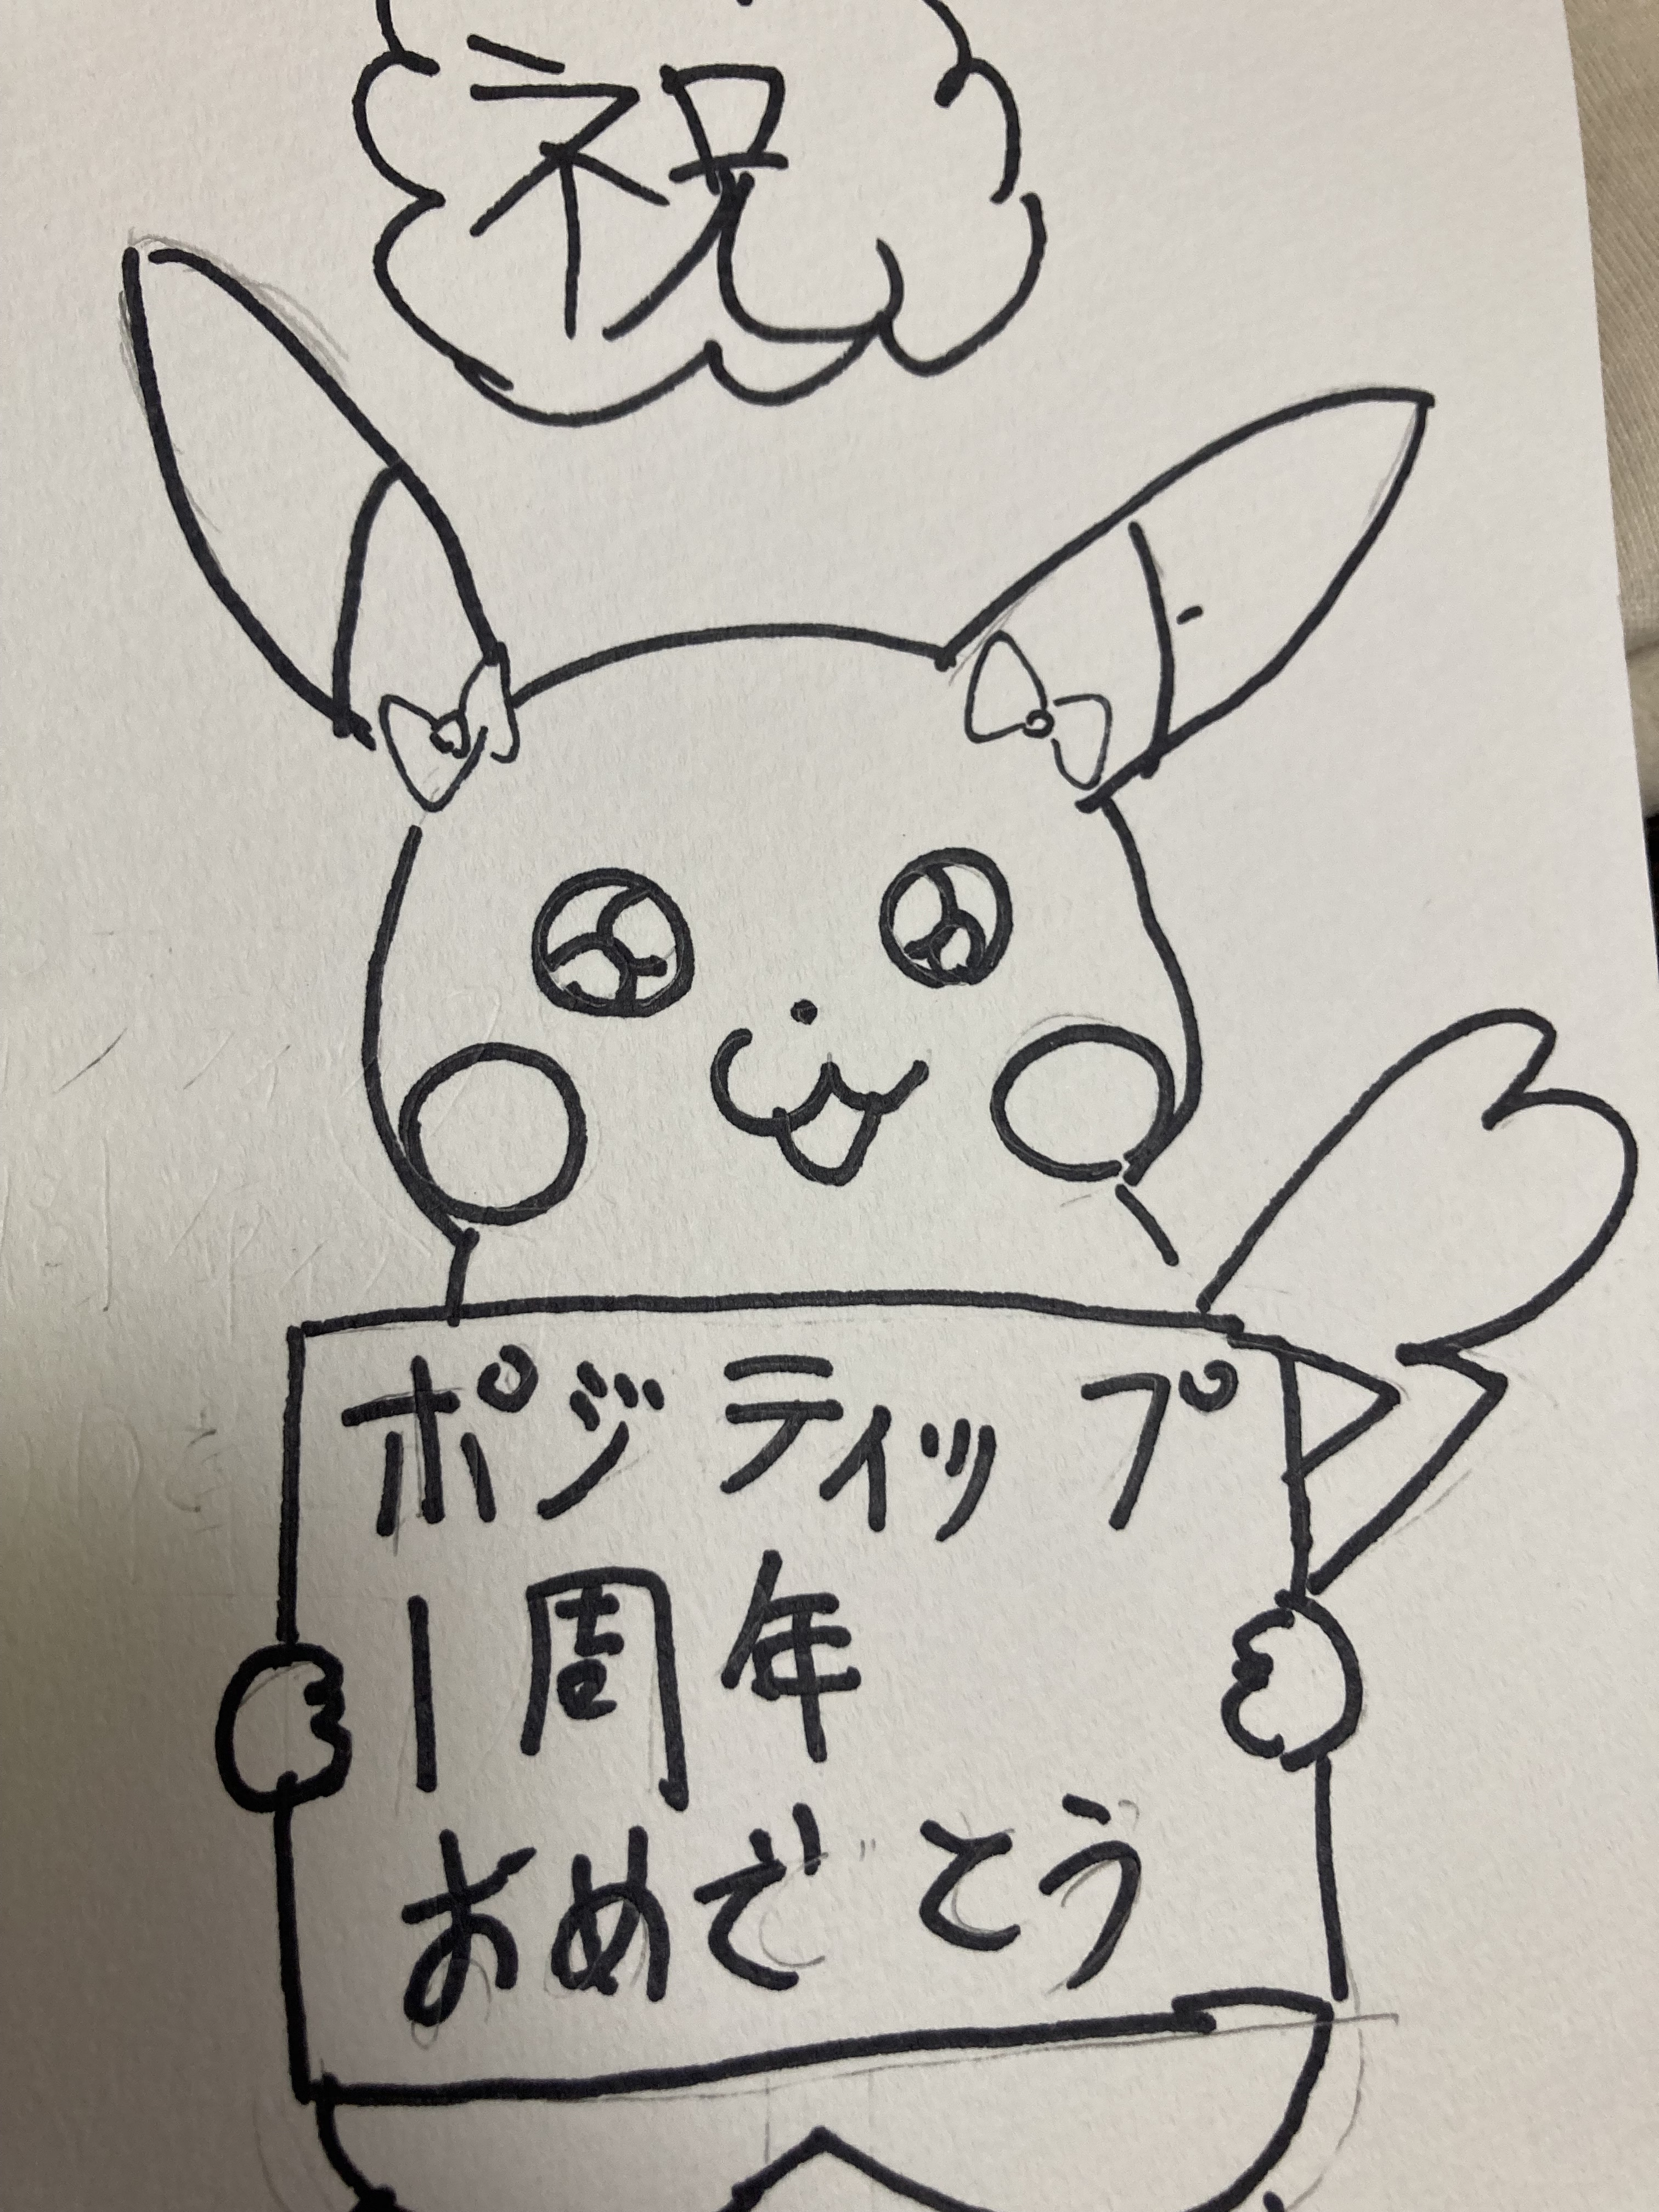 祝
ポジティップ
1周年
おめでとう